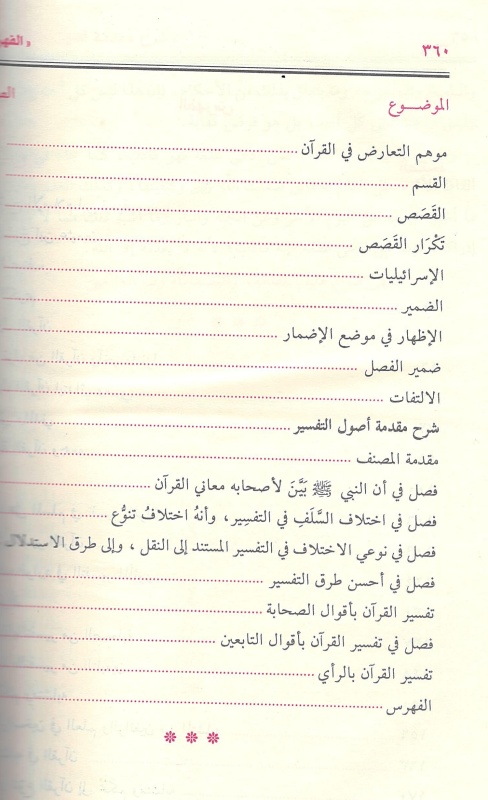 ٣٦٠
الموضـــوع
موهم التعارض في القرآن
القسم
القَصَص
تَكْرَار القَصَص
الإسرائيليات
الضمير
الإظهار في موضع الإضمار
ضمير الفصل
الالتفات
شرح مقدمة أصول التفسير
مقدمة المصنف
فصل في أن النبي ﷺ بَيَّنَ لأصحابه معاني القرآن
فصل في اختلاف السَّلَفِ في التفسِير، وأنهُ اختلافُ تنوُّع
فصل في نوعي الاختلاف في التفسير المستند إلى النقل، وإلى طرق الاستدلال
فصل في أحسن طرق التفسير
تفسير القرآن بأقوال الصحابة
فصل في تفسير القرآن بأقوال التابعين
تفسير القرآن بالرأي
الفهرس